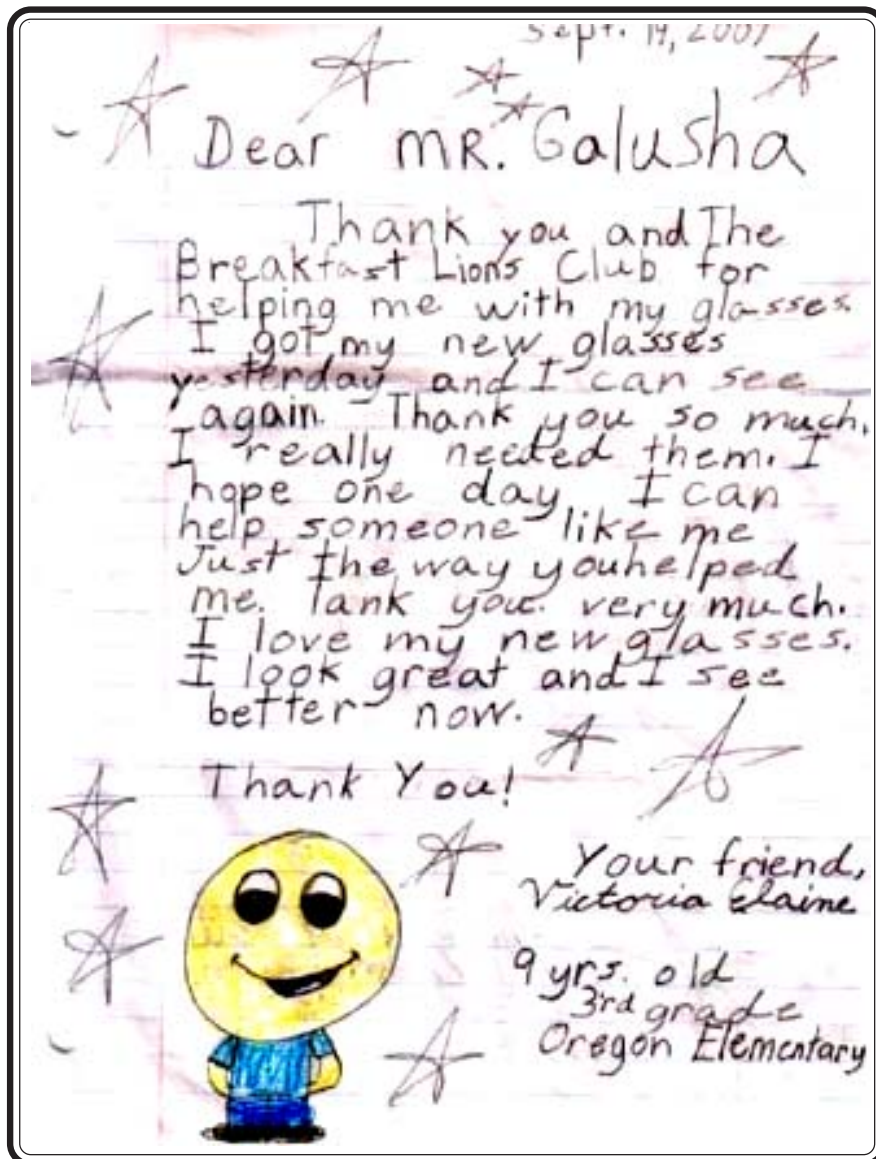 Sept. 14, 2001
Dear MR. Galusha
Thank you and The
Breakfast Lions Club for
helping me with my glasses.
I got my new glasses
yesterday and I can see
again. Thank you so much.
I really needed them. I
hope one day I can
help someone like me
Just the way youhelped
me. Tank you very much.
I love my new glasses.
I look great and I see
better now.
Thank You!
Your friend,
Victoria Elaine
9 yrs. old
3rd grade
Oregon Elementary